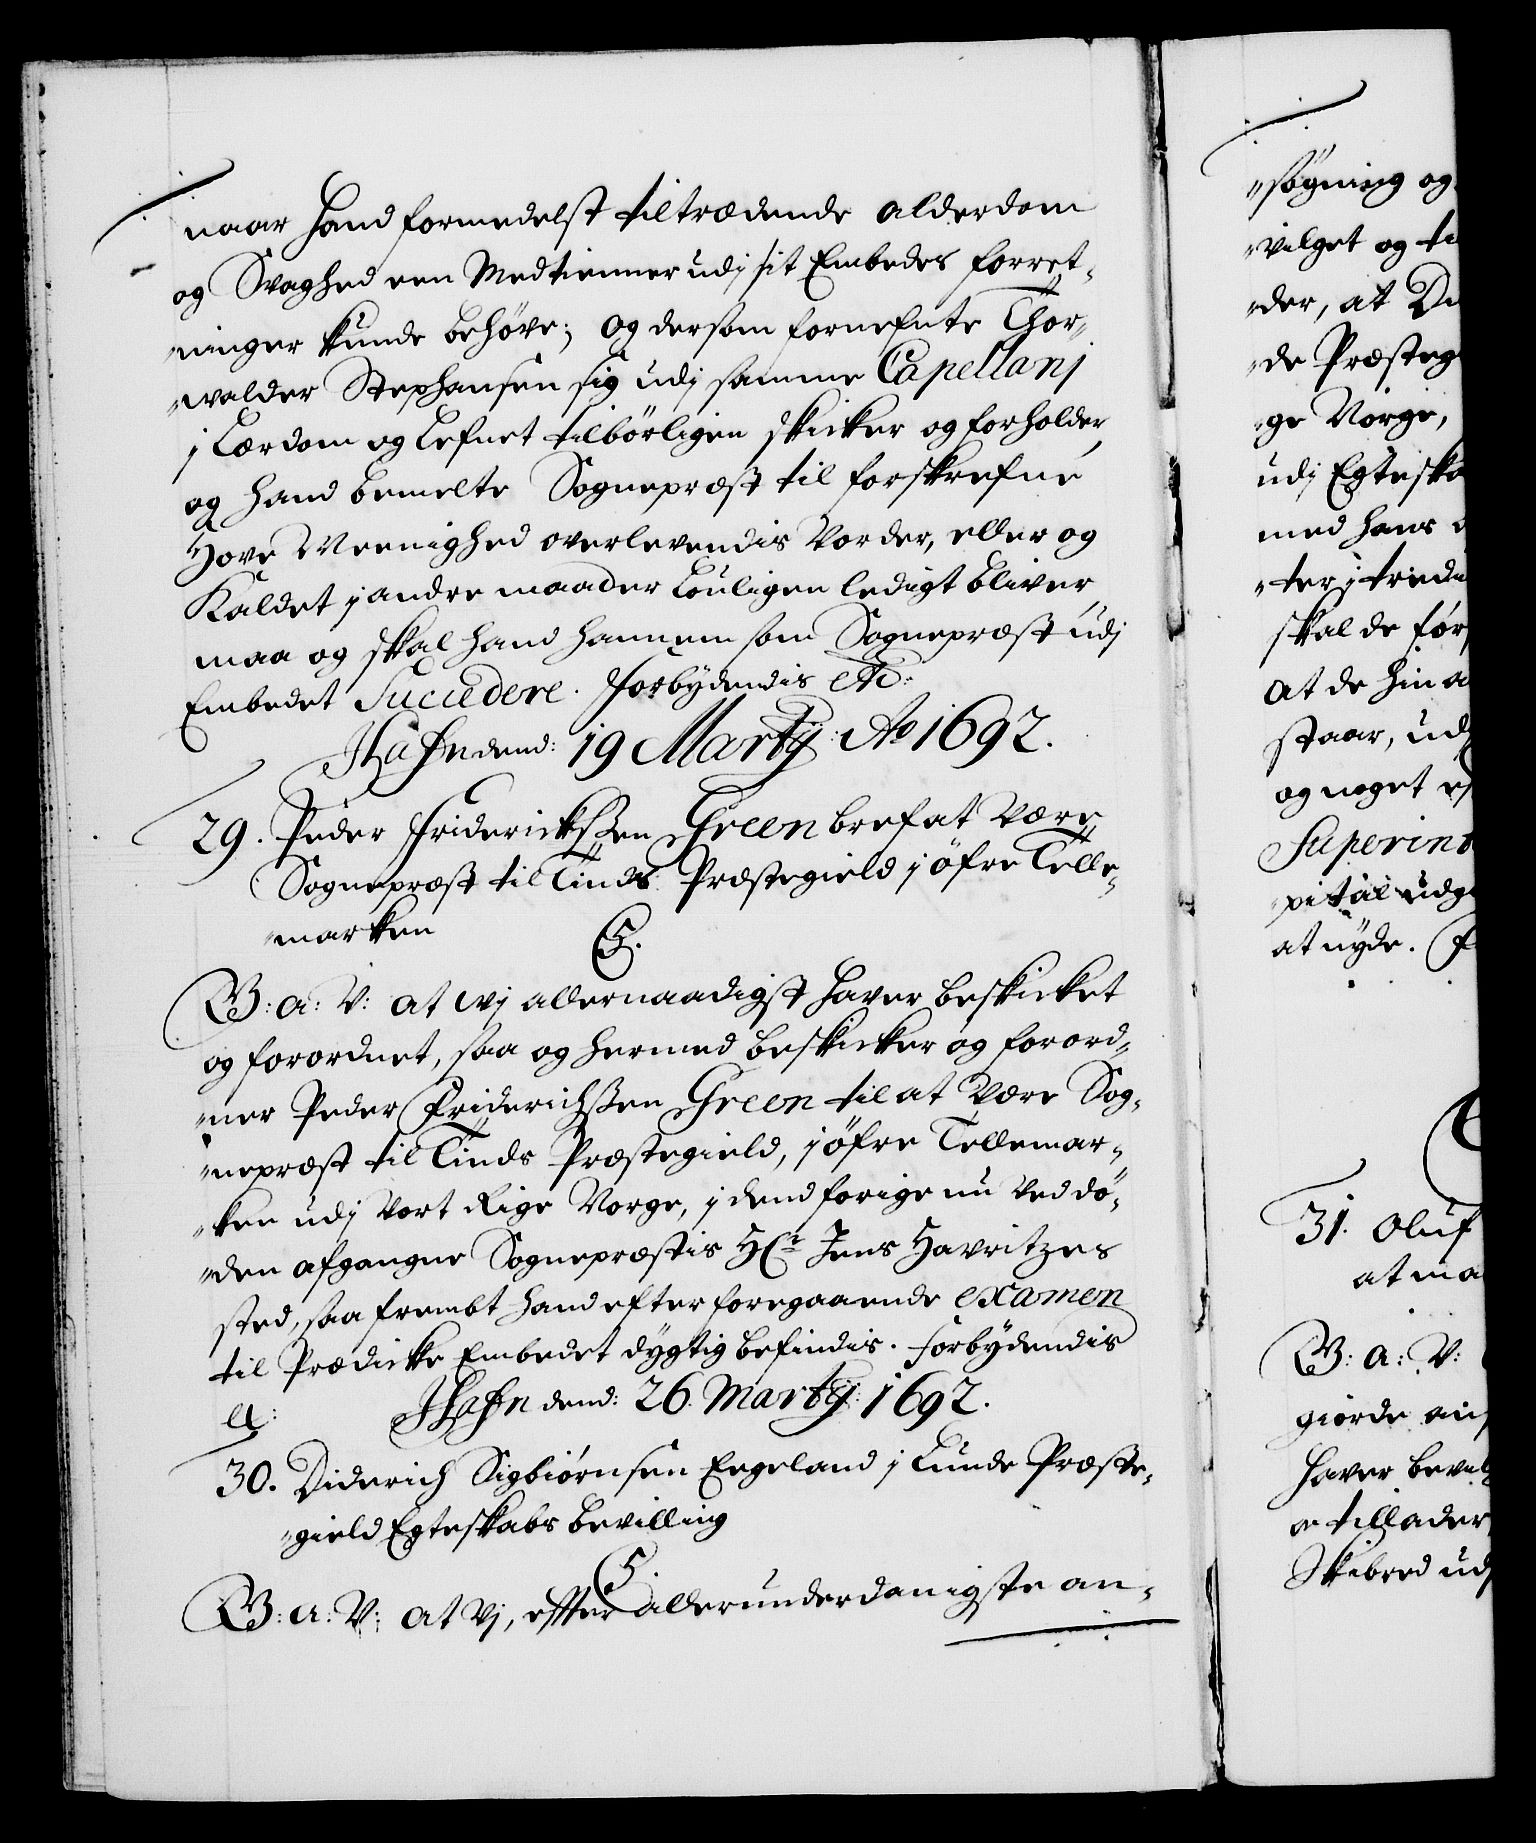 naar hand formedelst tiltrædende alderdom
og Svaghed een Medtienner udj sit Embedes forret-
ninger kunde behøve; og dersom fornefnte Thor-
walder Stephansen sig udj samme Capellanj
j Lærdom og Lefnet tilbörligen skicker og forholder,
og hand bemelte Sognepræst til forskrefne
Hove Meenighed overlevendis Vorder, eller og
Kaldet j andre maader Louligen ledigt bliver,
maa og skal hand hannem som Sognepræst udj
Embedet Succedere. Forbydendis etc:
Hafn dend: 19 Martij: Ao 1692.
29. Peder Fridericksen Green bref at være
Sognepræst til Tinds Præstegield j öfre Telle-
marken
C5.
G: a: V: at wj allernaadigst haver beskicket
og forordnet, saa og hermed beskicker og forord-
ner Peder Friderichsen Green til at være Sog-
nepræst til Tinds Præstegield, j öfre Tellemar-
ken udj Vort Rige Norge, j dend forige nu ved dö-
den afgangne Sognepræstis Hr Jens Havritzes
sted, saa frembt hand efter foregaaende examen
til Prædicke Embedet dygtig befindis. Forbydendis
etc:
Hafn dend: 26. Martij: 1692.
30. Diderich Sigbiørnsen Eegeland j Lunde Præste-
gield Egteskabs bevilling
C5.
G: a: V: at Vj, effter allerunderdanigste an-
søgning og
vilget og ti
der, at Di
de Præsteg
ge Norge,
udj Egteska
med hans
ter j tredie
skal de før
at de hin a
staar, udj
og noget
Superint
pital udg
at nyde. F
31. Oluf
at ma
G: a: V:
giørde an
haver bevil
tillader
Skibred udj